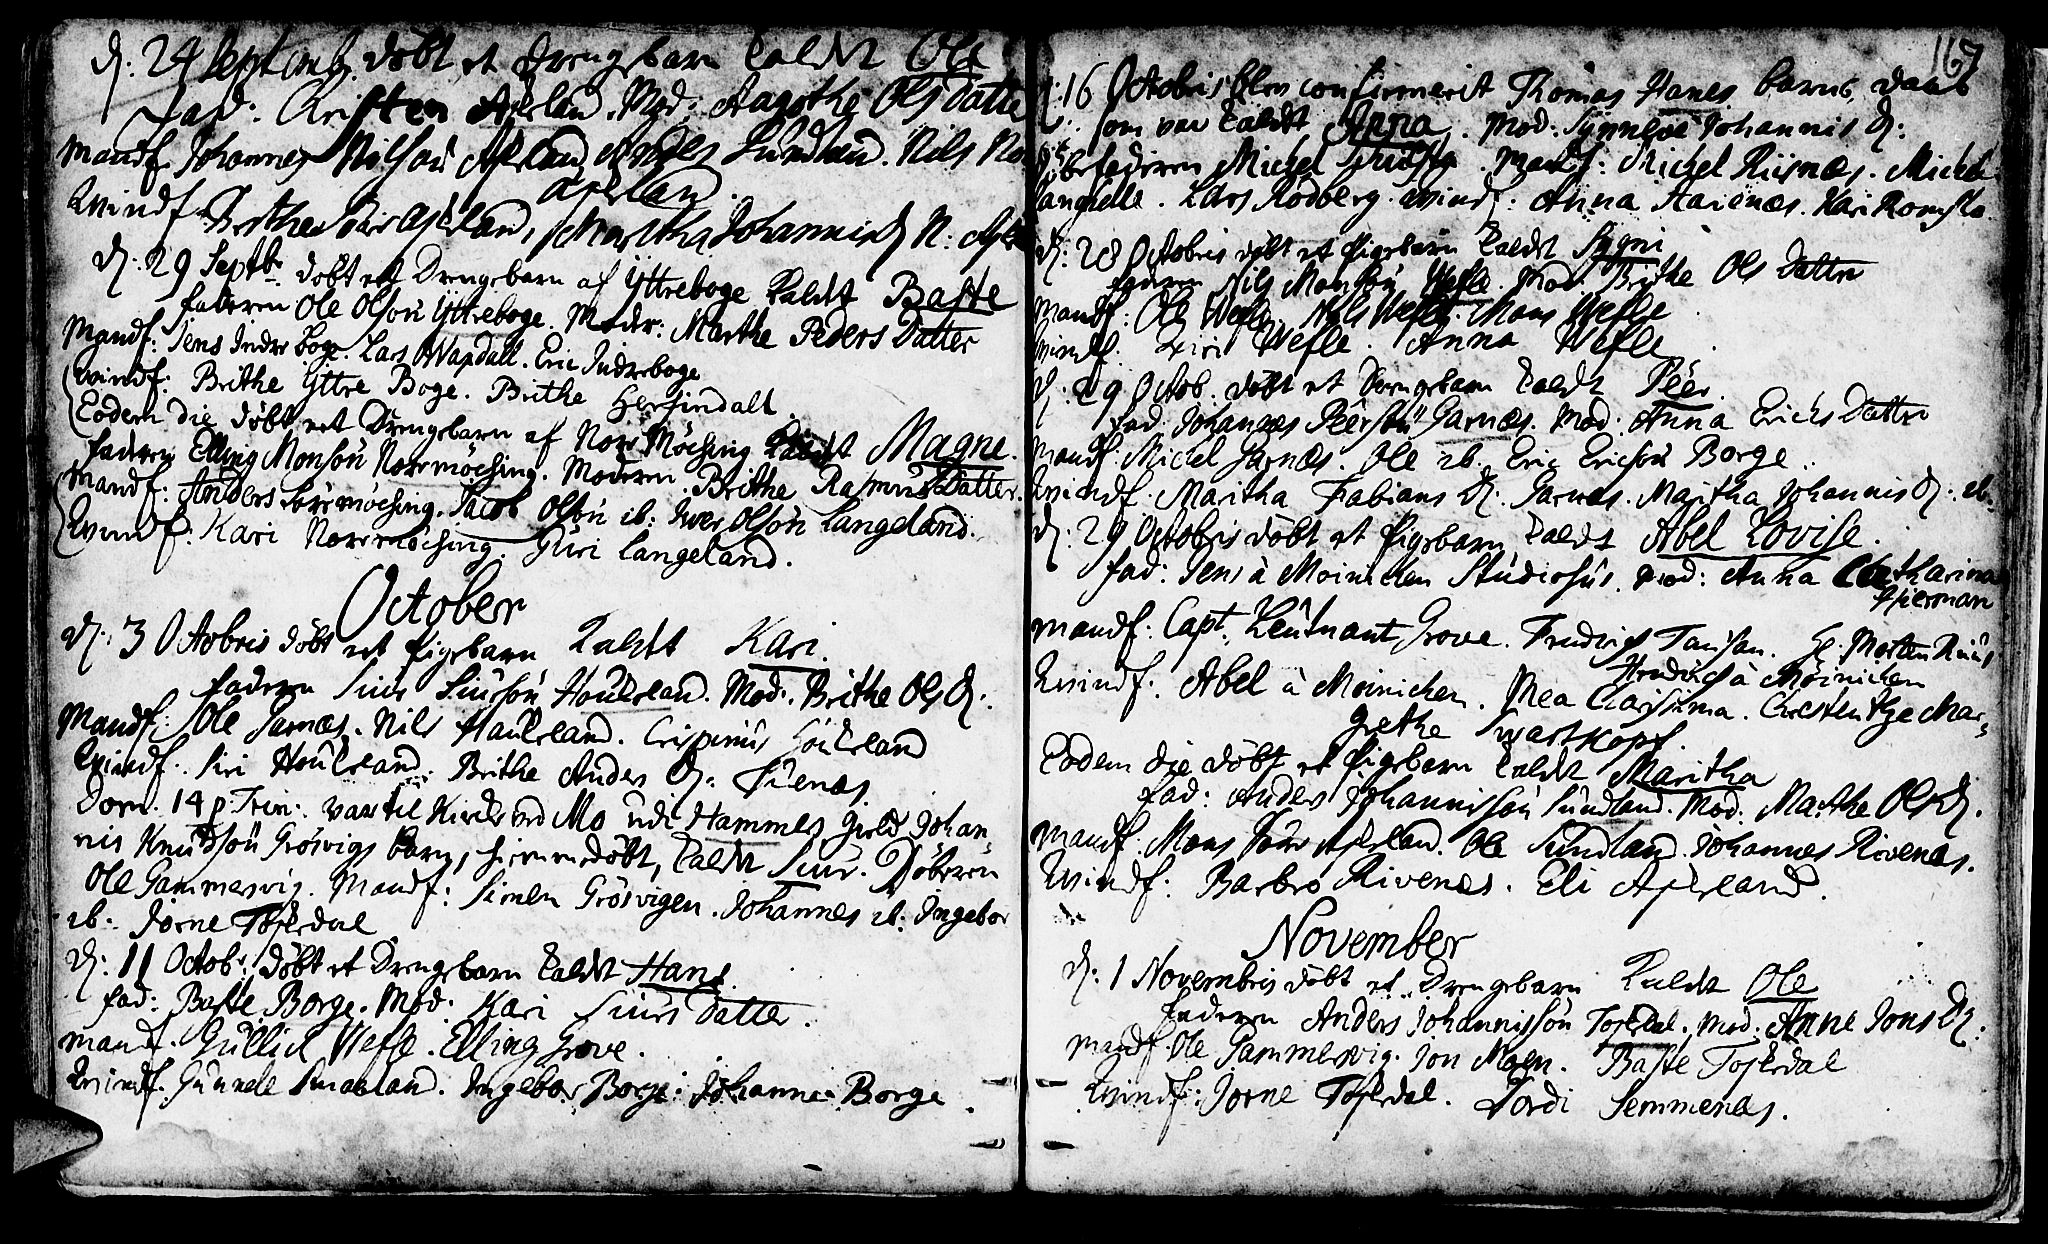 d: 24 Septemb. döbt et Drengebarn kaldt Ole
Fad: Christen Aseland. Mod: Aagothe Ols datte
Mandf. Johannes Nilsøn Aseland Anders Sundland. Nils
Aseland.
Qvindf. Brithe Aseland, Martha Johannisd
d: 29 Septb. döbt ett Drengebarn af Yttreboge kaldt Baste
faderen Ole Olsøn Yttreboge. Moder: Marthe Peders Datter
Mandf: Jens Indre Boge. Lars Wapdall. Eric Indreboge
Qvindf: Brithe Yttre Boge. Brithe Hersindall.
Eodem die döbt ett Drengebarn af Norr Möchsing kaldt Magne.
faderen Elling Monsøn Norrmöchsing. Moderen. Brithe Rasmus Datter.
Mandf: Anders Sörrmöchsing. Jacob Olsøn ib: Iver Olsøn Langeland.
Qvindf: Kari Norrmöchsing. Guri Langeland.
October
d: 3 Octobris döbt et Pigebarn kaldt Kari.
faderen Siur Siursøn Houkeland. Mod: Brithe Ols D.
Mandf: Ole Garnæs. Nils Haukeland. Crispinus Houkeland
Qvindf. Siri Houkeland. Brithe Anders D: Tuenæs.
Dom. 14 p: Trin: var til Kirke ved Mo udi Hammers gield Johan-
nis Knudsøn Grösvigs barn, hiemmedöbt, kaldt Siur. Döberen
Ole Gammersvig. Mandf: Simen Grösvigen. Johannes ib: Ingebor
ib: Jorne Toskedal
d: 11 Octobr. döbt et Drengebarn kaldt Hans.
fad: Baste Borge. Mod. Kari Siurs datter.
mandf. Gullick Wefle. Elling Grove.
Qvindf. Gunnele Smaaland. Ingebor Borge. Johanne Borge.
167
d: 16 Octobris blev confirmerit Thomas Hanes barns daab
som var kaldt Anna. Mod: Synneve Johannis D:
Döbefaderen Michel. Mandf: Michel Risnæs. Michel
Lars Rödberg. Qvindf: Anna Aasenæs. Kari
d: 28 Octobris döbt et Pigebarn kaldt Sygni
faderen Nils Monsøn Wefle. Mod. Brithe Ols Datter
Mandf: Ole Wefle. Nils Wefle. Mons Wefle
Qvindf. Siri Wefle. Anna Wefle.
d. 29 Octob. döbt et Drengebarn kaldt Peer.
fad. Johannes Peersøn Garnæs. Mod: Anna Erichs Datter
Mandf: Michel Garnæs. Ole ib. Eric Ericsøn Borge.
Qvindf. Maritha Fabians D: Garnæs. Maritha Johannis D: ib.
d: 29 Octobris döbt et Pigebarn kaldt Abel Lovise.
fad: Jens à Moinichen Studiosus. Mod: Anna Catharina
Hierman
Mandf: Capt. Leutnant Grove. Fredrich Tausan. Hr. Morten Ruus
Hendrich à Möinichen
Qvindf: Abel à Moinichen. Mea Charissima. Chrestentze Mar-
grethe Swartkopf.
Eodem die döbt et Pigebarn kaldt Maritha
fad: Anders Johannissøn Sundland. Mod: Marthe Ols D.
Mandf. Mons Aseland. Ole Sundland. Johannes Rivenæs.
Qvindf: Barbro Rivenæs. Eli Aseland.
November
d: 1 Novembris döbt et Drengebarn kaldt Ole
Faderen Anders Johannissøn Toskedal. Mod: Anne Jons D:
Mandf. Ole Gammersvig. Jon Moen. Baste Toskedal
Qvindf: Jorne Toskedal. Dordi Semmenæs.